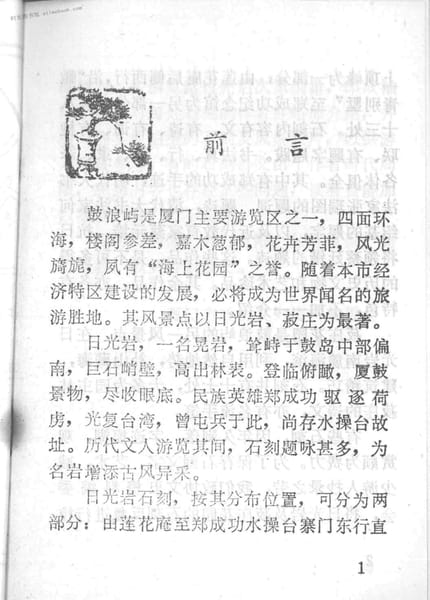 前言
鼓浪屿是厦门主要游览区之一，四面环
海，楼阁参差，嘉木葱郁，花卉芳菲，风光
旖旎，夙有“海上花园”之誉。随着本市经
济特区建设的发展，必将成为世界闻名的旅
游胜地。其风景点以日光岩、菽庄为最著。
日光岩，一名晃岩，耸峙于鼓岛中部偏
南，巨石峭壁，高出林表。登临俯瞰，厦鼓
景物，尽收眼底。民族英雄郑成功驱逐荷
虏，光复台湾，曾屯兵于此，尚存水操台故
址。历代文人游览其间，石刻题咏甚多，为
名岩增添古风异采。
日光岩石刻，按其分布位置，可分为两
部分：由莲花庵至郑成功水操台寨门东行直
1